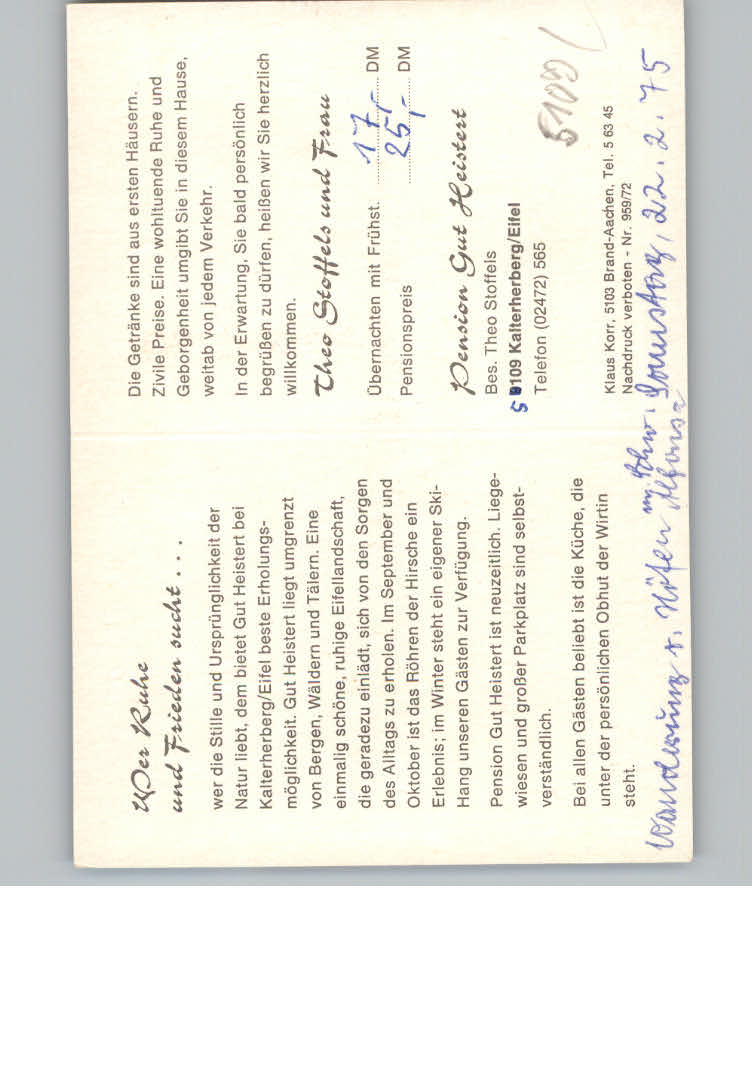 Wer Ruhe
und Frieden sucht . . .
wer die Stille und Ursprünglichkeit der
Natur liebt, dem bietet Gut Heistert bei
Kalterherberg/Eifel beste Erholungs-
möglichkeit. Gut Heistert liegt umgrenzt
von Bergen, Wäldern und Tälern. Eine
einmalig schöne, ruhige Eifellandschaft,
die geradezu einlädt, sich von den Sorgen
des Alltags zu erholen. Im September und
Oktober ist das Röhren der Hirsche ein
Erlebnis; im Winter steht ein eigener Ski-
Hang unseren Gästen zur Verfügung.
Pension Gut Heistert ist neuzeitlich. Liege-
wiesen und großer Parkplatz sind selbst-
verständlich.
Bei allen Gästen beliebt ist die Küche, die
unter der persönlichen Obhut der Wirtin
steht.
Die Getränke sind aus ersten Häusern.
Zivile Preise. Eine wohltuende Ruhe und
Geborgenheit umgibt Sie in diesem Hause,
weitab von jedem Verkehr.
In der Erwartung, Sie bald persönlich
begrüßen zu dürfen, heißen wir Sie herzlich
willkommen.
Theo Stoffels und Frau
Übernachten mit Frühst. 17,- DM
Pensionspreis 25,- DM
Pension Gut Heistert
Bes. Theo Stoffels
5109 Kalterherberg/Eifel
Telefon (02472) 565
5109
Klaus Korr, 5103 Brand-Aachen, Tel. 5 63 45
Nachdruck verboten - Nr. 959/72
Wanderung v. Höfen m. Schw. Alfonsa Sonnstag, 22.2.75